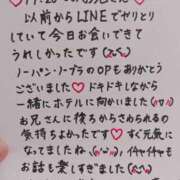 以前からLINEでやりとり
していて今日お会いできて
うれしかったです
ノーパン・ノーブラのOPもありがとう
ございました♥ドキドキしながら
一緒にホテルに向かいました
お兄さんに後ろからさわられるの
気持ちよかったです♥すぐ元気に
なってましたね
お話も楽しすぎました